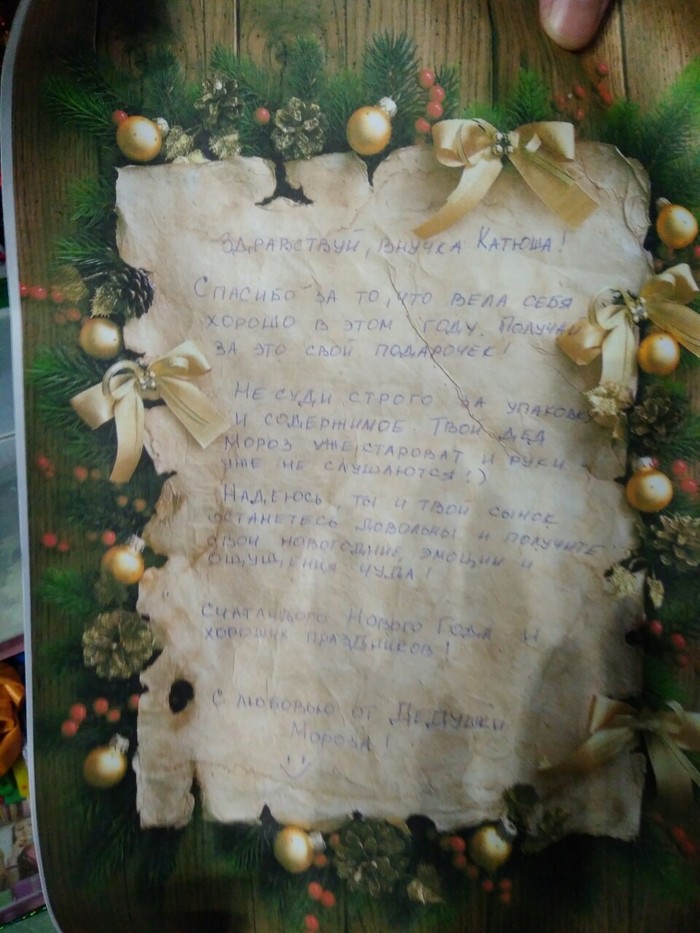 Здравствуй, внучка Катюша!
Спасибо за то, что вела себя
хорошо в этом году. Получай
за это свой подарочек!
Не суди строго за упаковку
и содержимое. Твой Дед
Мороз уже староват и руки
уже не слушаются!)
Надеюсь, ты и твой сынок
останетесь довольны и получите
свои новогодние эмоции и
ощущения чуда!
Счатливого Нового Года и
хороших праздников!
С любовью от Дедушки
Мороза!